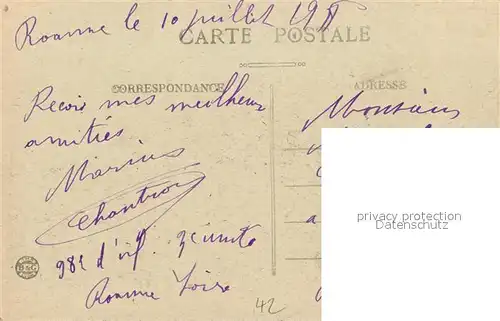 Roanne le 10 juillet 19
CARTE POSTALE
CORRESPONDANCE
ADRESSE
Reçois mes meilleurs
amitiés
Marius
Chantron
98e d'inf.
Roanne Loire
Monsieur
privacy protection
Datenschutz
B&G
42